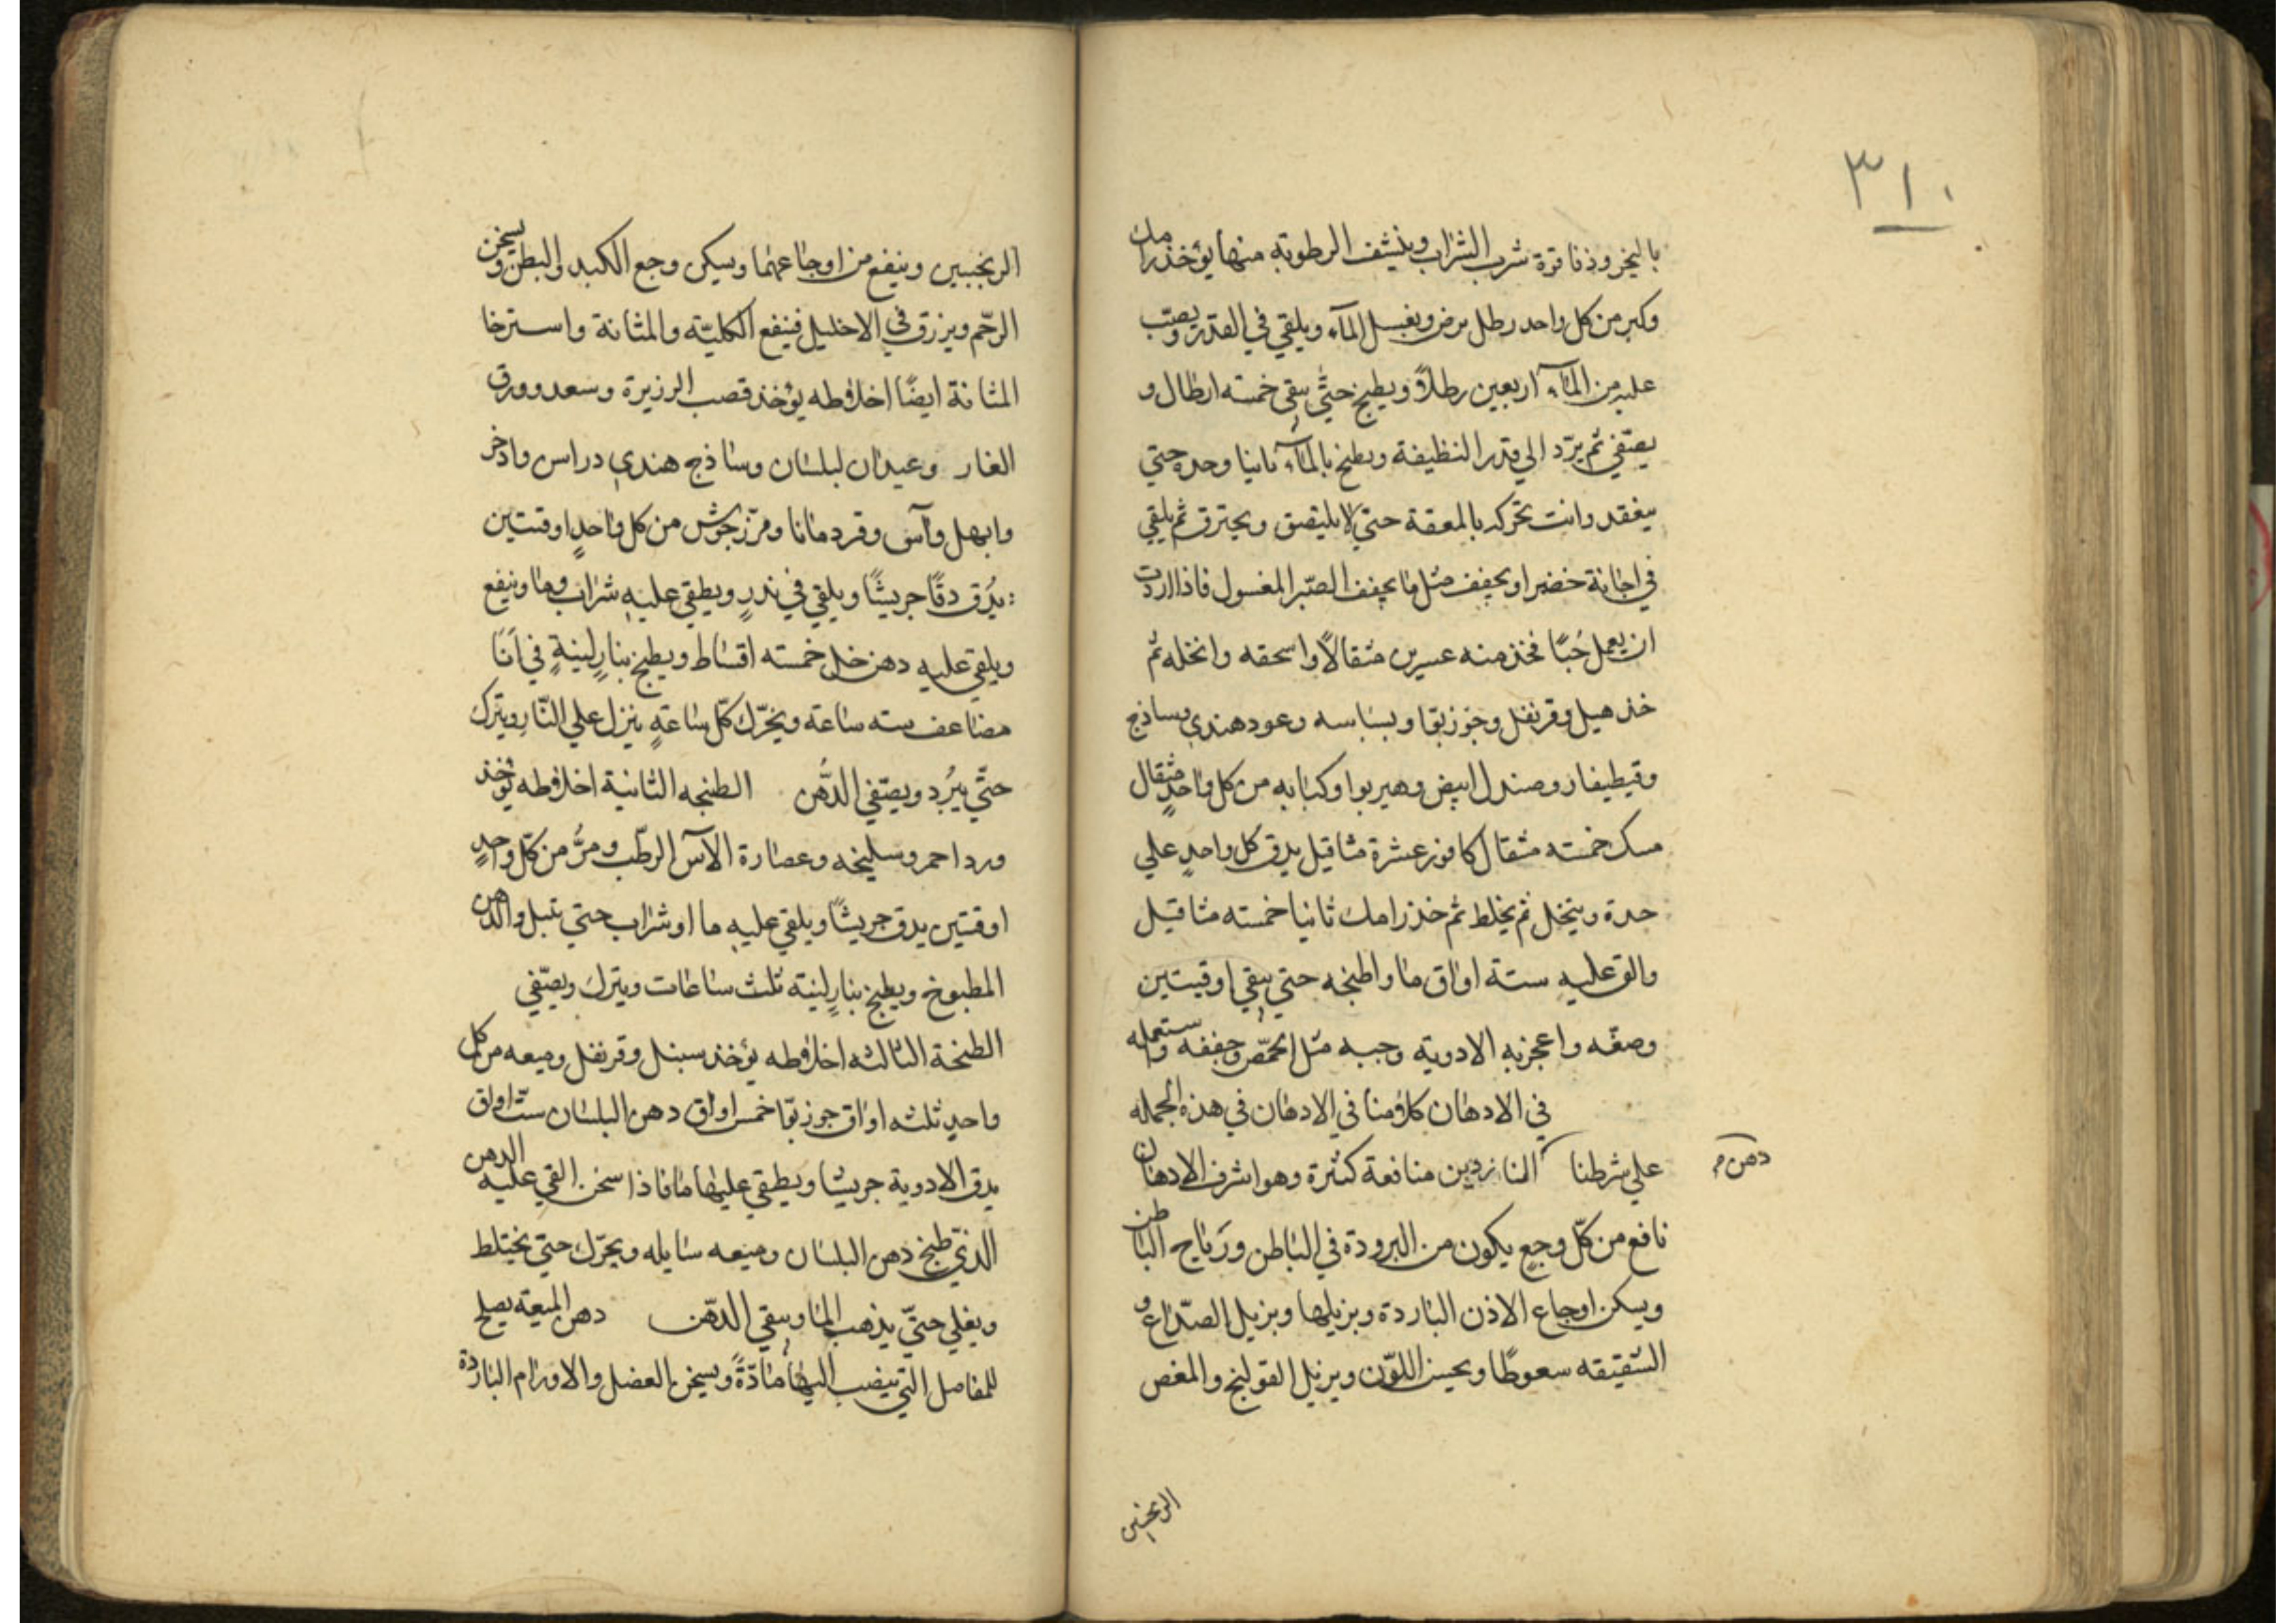 ٣١٠
بالبخر وذفا قرة شرب الشراب وينشف الرطوبة منها يؤخذ رامك
وكبر من كل واحد رطل يرض ويغسل الماء ويلقي في القدر ويصبّ
عليه من الماء اربعين رطلاً ويطبخ حتّي يبقي خمسته ارطال و
يصفّي ثم يردّ الي قدر النظيفة ويطبخ بالماء ثانيا وحده حتي
ينعقد وانت تحركه بالمعقة حتي لا يليصق ويحترق ثم يلقي
في اجانة خضيرا ويجفف مثل ما يجفف الصّبر المغسول فاذا اردت
ان يعمل حُبًا فخذ منه عسرين مثقالاً واسحقه وانخله ثم
خذ هيل وقرنفل وجوز بوّا وبسباسه وعود هندي بساذج
وقيطيفار وصندل ابيض وهيربوا وكبابه من كل واحدٍ مثقال
مسك خمسته مثقال كافور عشرة مثاقيل يدق كل واحدٍ علي
حدة وينخل ثم يخلط ثم خذ رامك ثانيا خمسته مثاقيل
والق عليه ستة اواق ما واطبخه حتي يبقي اوقيتين
وصفّه واعجزبه الادوية وحبه مثل الحمّص وجففه واستعمله
في الادهان كلامنا في الادهان في هذه الجمله
علي شرطنا النازدين منافعة كثيرة وهو اشرف الادهان
دهن م
نافع من كلّ وجعٍ يكون من البرودة في الباطن ورَياح الباطن
ويسكن اوجاع الاذن الباردة ويزيلها ويزيل الصّداع و
الشقيقه سعوطًا ويحسن اللوّن ويزيل القولنج والمغص
الريحبين
الريحبين وينفع من اوجاعهما ويسكن وجع الكبد والبطن ويسخن
الرحّم ويزرق في الاحليل فينفع الكليّة والمثانة واسترخا
المثانة ايضًا اخلاطه يؤخذ قصب الرزيرة وسعد وورق
الغار وعيدان لبلسان وساذج هندي دراس واذخر
وابهل وآس وقردمانا ومرّزجوش من كل واحدٍ اوقتين
يُدق دقًا جريشًا ويلقي في ندرٍ ويطقي عليه شراب وما وينفع
ويلقي عليه دهن خل خمسته اقساط ويطبخ بنارٍ لينةٍ في اَنَا
مضاعف سته ساعة ويحّرك كلّ ساعةٍ ينزل علي النّار ويترك
حتّي يبرُد ويصفّي الدُّهن الطبخه الثانية اخلاطه يؤخذ
ورد احمر وسليخه وعصارة الآس الرطّب ومُرّ من كلّ واحدٍ
اوقتين يدق جريشًا ويلقي عليه ما او شراب حتي تبل والدهن
المطبوخ ويطبخ بنارٍ لينته ثلث ساعات ويترك ويصفّي
الطبخة الثالثه اخلاطه يؤخذ سبنل وقرنفل وميعه من كل
واحدٍ ثلثه اواق جوز بوّا خمس اواق دهن البلسان ستّ اواق
يدق الادوية جريشا ويطقي عليها ما فاذا سخن القي عليه الدهن
الذي طبخ دهن البلسان وميعه سايله ويحّرك حتي يختلط
ويغلي حتيّ يذهب الما ويبقي الدّهن دهن الميعة يصلح
للمفاصل التي ينصب اليها مادّةً ويسخن العضل والاورام الباردة